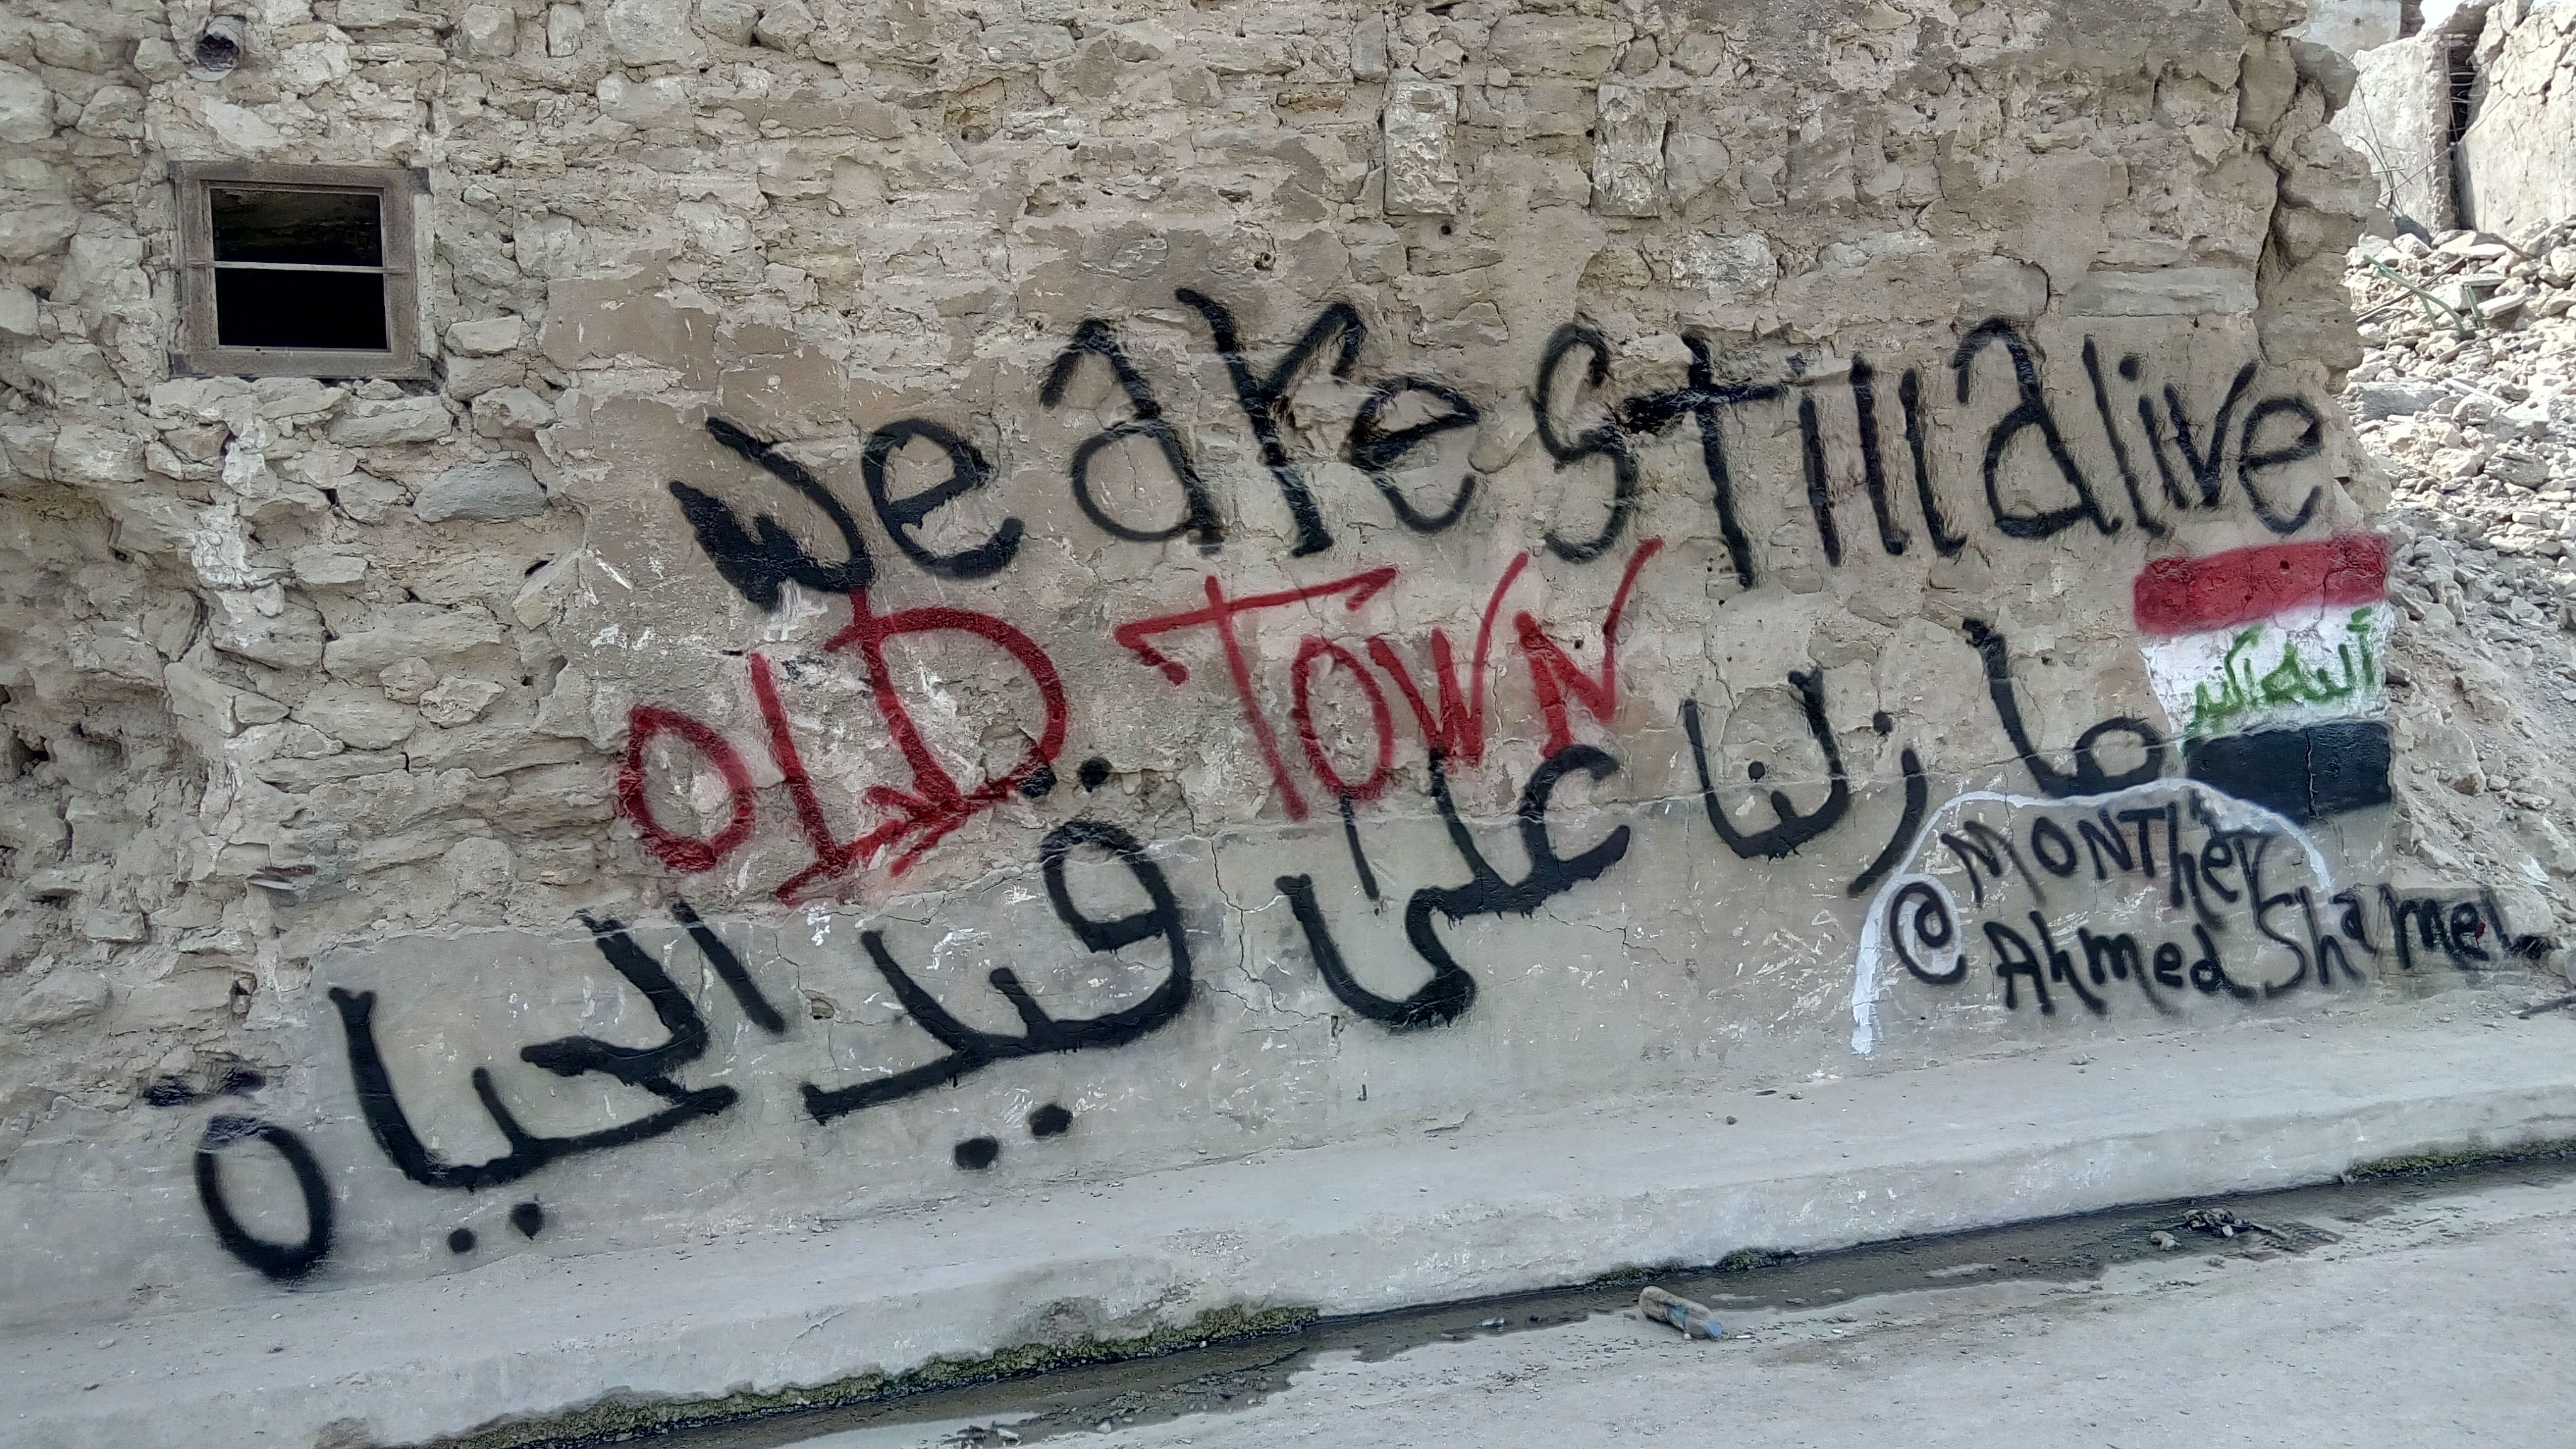 We are still alive
OLD TOWN
الله اكبر
ما زلنا على قيد الحياة
MONTher
@ Ahmed Shamel